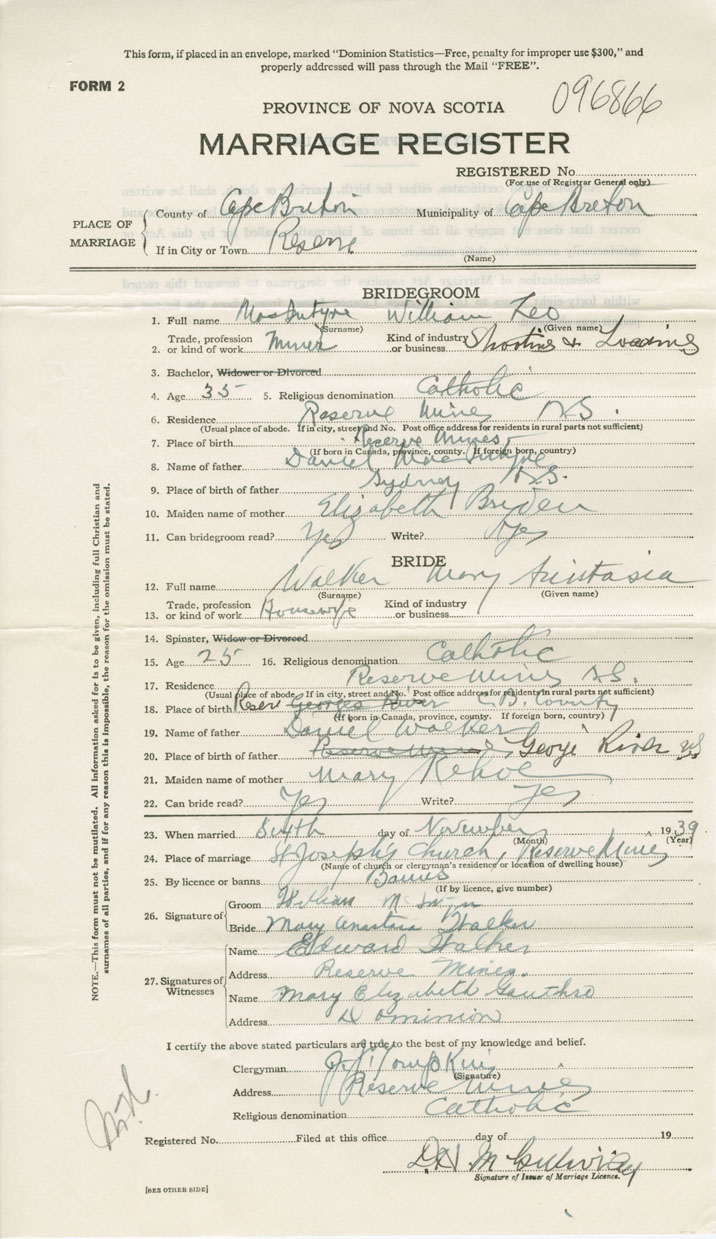 This form, if placed in an envelope, marked "Dominion Statistics—Free, penalty for improper use $300," and
properly addressed will pass through the Mail "FREE".
FORM 2
096866
PROVINCE OF NOVA SCOTIA
MARRIAGE REGISTER
REGISTERED No.
(For use of Registrar General only)
PLACE OF MARRIAGE
County of Cape Breton Municipality of Cape Breton
If in City or Town Reserve
(Name)
BRIDEGROOM
1. Full name MacIntyre William Leo
(Surname) (Given name)
2. Trade, profession or kind of work Miner Kind of industry or business Shooting & Loading
3. Bachelor, Widower or Divorced
4. Age 35 5. Religious denomination Catholic
6. Residence Reserve Mines N.S.
(Usual place of abode. If in city, street and No. Post office address for residents in rural parts not sufficient)
7. Place of birth Reserve Mines
(If born in Canada, province, county. If foreign born, country)
8. Name of father Daniel MacIntyre
9. Place of birth of father Sydney N.S.
10. Maiden name of mother Elizabeth Briden
11. Can bridegroom read? Yes Write? Yes
BRIDE
12. Full name Walker Mary Anistasia
(Surname) (Given name)
13. Trade, profession or kind of work Housewife Kind of industry or business
14. Spinster, Widow or Divorced
15. Age 25 16. Religious denomination Catholic
17. Residence Reserve Mines N.S.
(Usual place of abode. If in city, street and No. Post office address for residents in rural parts not sufficient)
18. Place of birth Reserve Georges River C.B. County
(If born in Canada, province, county. If foreign born, country)
19. Name of father Daniel Walker
20. Place of birth of father Reserve Mines, George River NS
21. Maiden name of mother Mary Kehoe
22. Can bride read? Yes Write? Yes
23. When married Sixth day of November 1939
(Month) (Year)
24. Place of marriage St Joseph's Church, Reserve Mines
(Name of church or clergyman's residence or location of dwelling house)
25. By licence or banns Banns
(If by licence, give number)
26. Signature of
Groom William
Bride Mary Anastasia Walker
27. Signatures of Witnesses
Name Edward Walker
Address Reserve Mines.
Name Mary Elizabeth Gouthro
Address Dominion
I certify the above stated particulars are true to the best of my knowledge and belief.
Clergyman J. J. Tompkins
(Signature)
Address Reserve Mines
Religious denomination Catholic
Registered No. Filed at this office day of 19
Signature of Issuer of Marriage Licence.
[SEE OTHER SIDE]
NOTE.—This form must not be mutilated. All information asked for is to be given, including full Christian and
surnames of all parties, and if for any reason this is impossible, the reason for the omission must be stated.